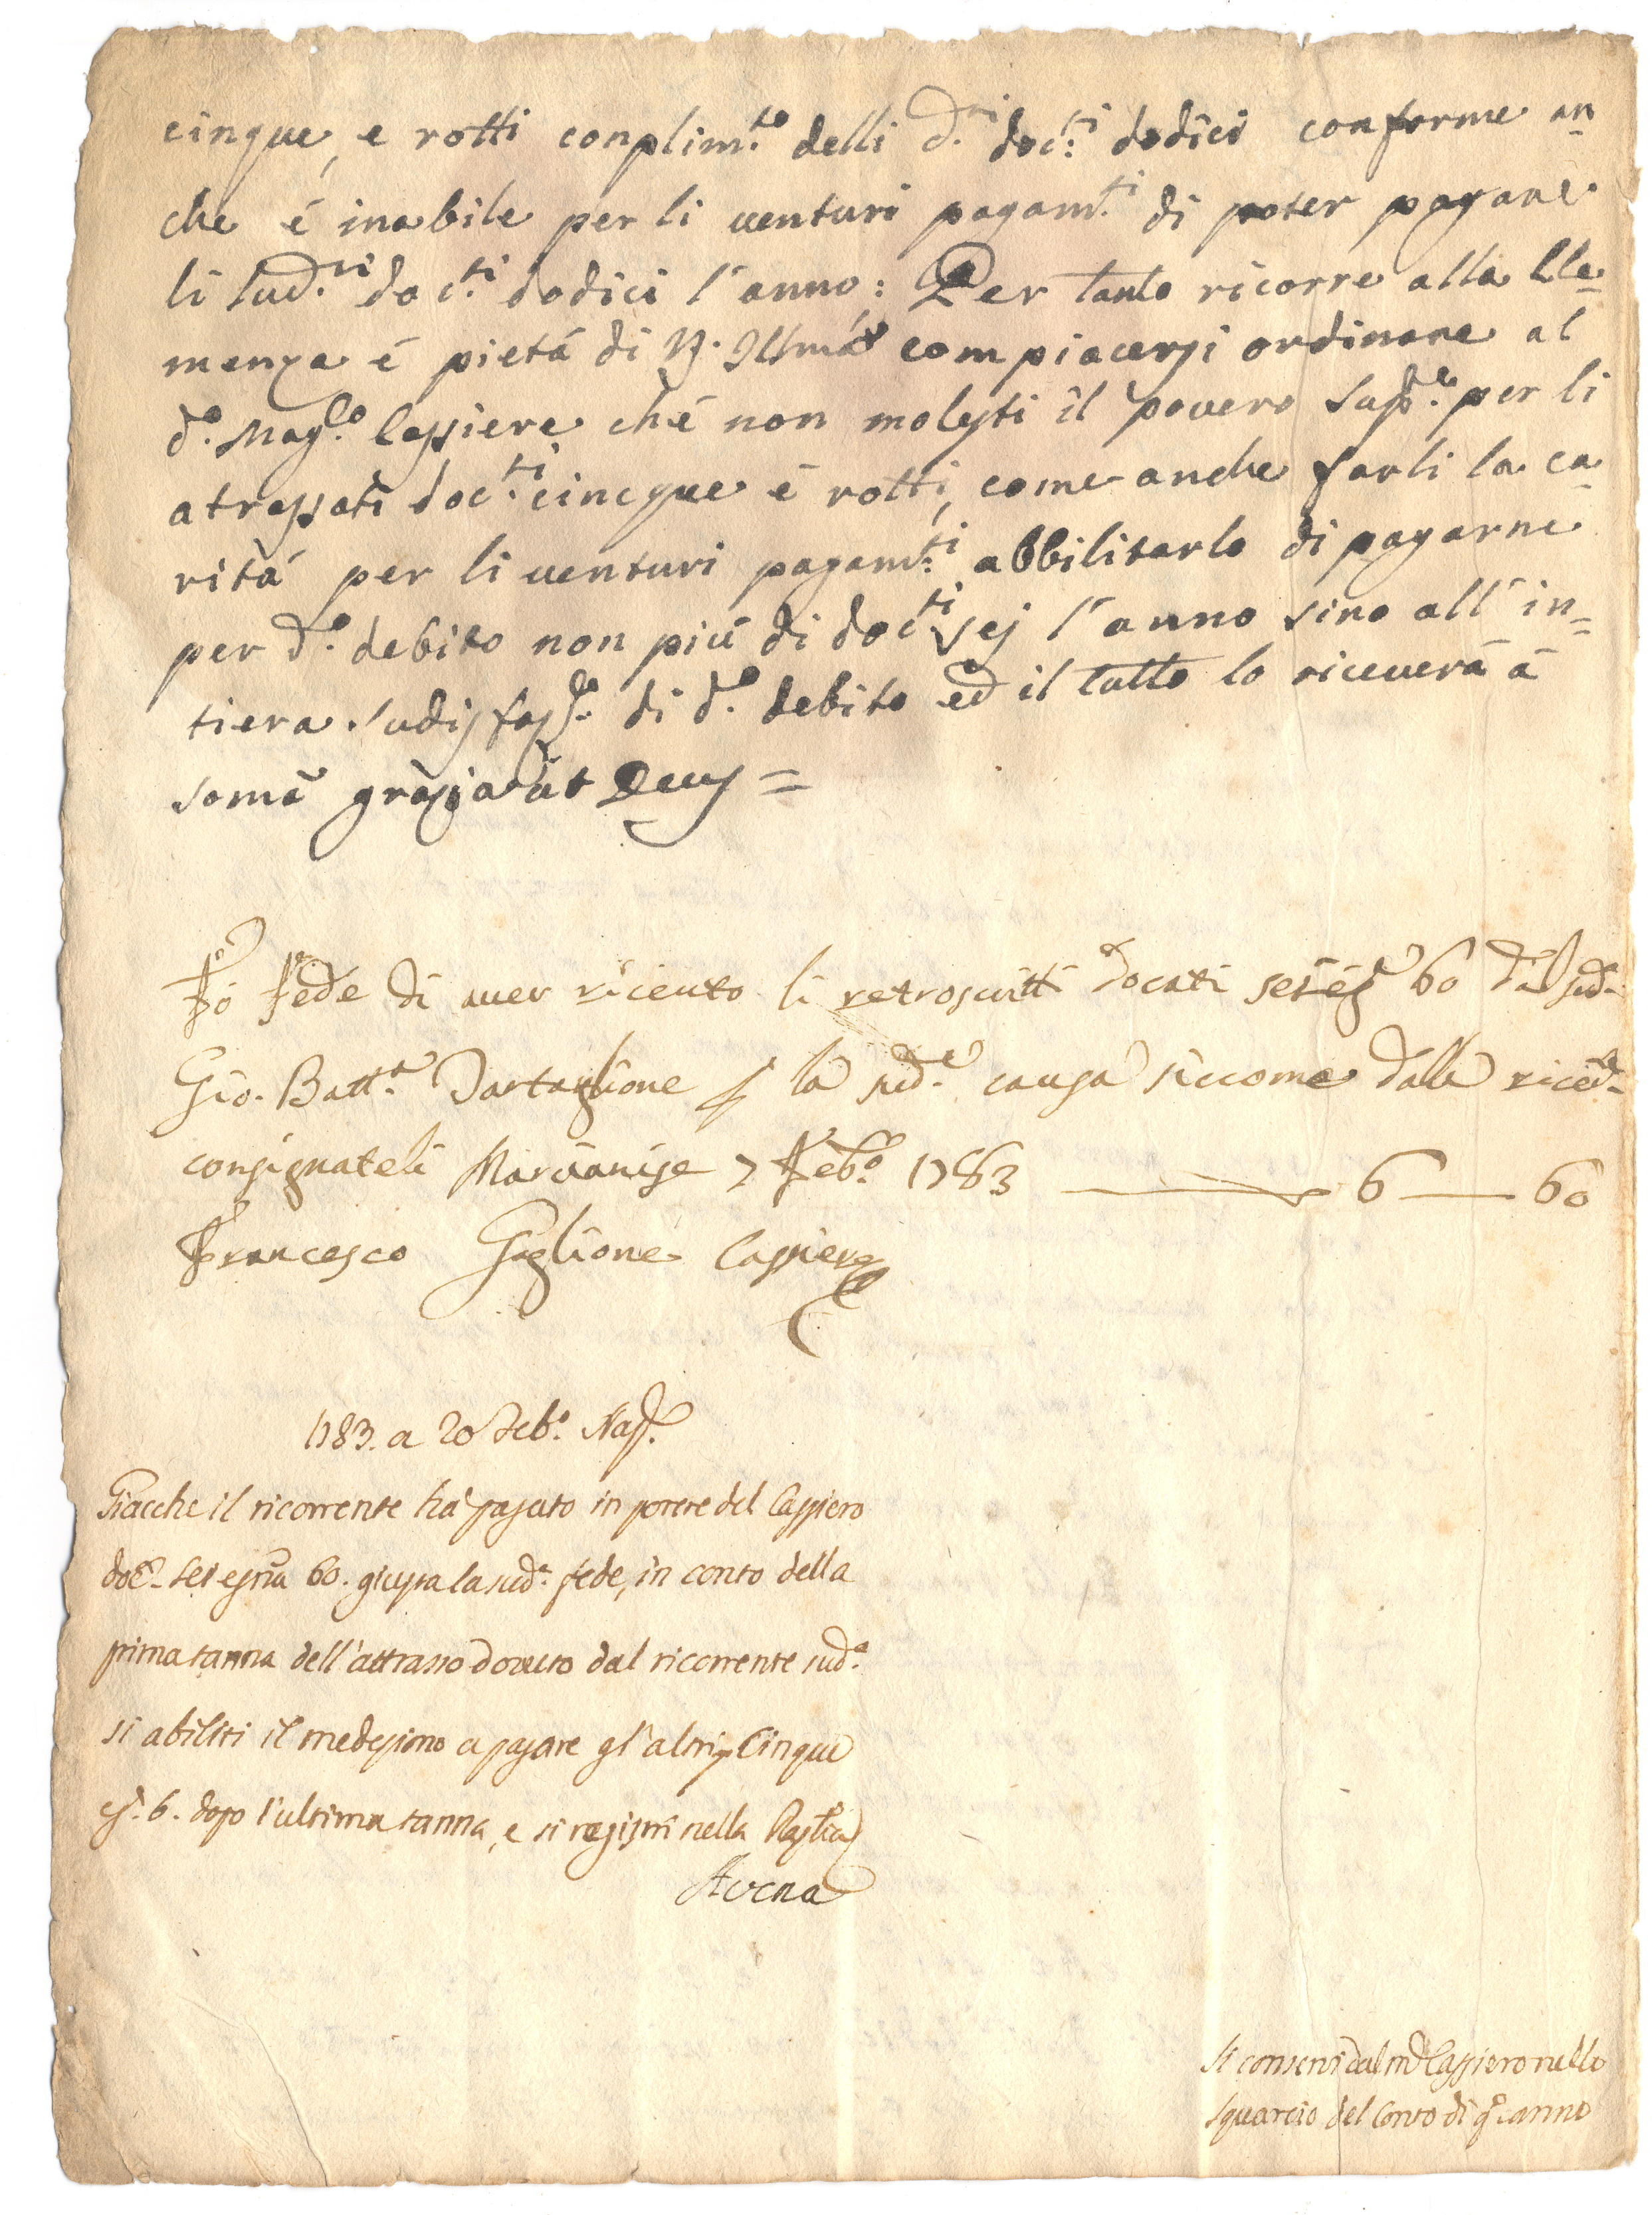 cinque, e rotti conplim.to delli d.ti doc.ti dodici conforme an
che é inabile per li venturi pagam.ti di poter pagare
li sud.ti doc.ti dodici l'anno: Per tanto ricorre alla Cle=
menza é pietá di V. Illmá compiacersi ordinare al
d.o Mag.co Cassiere ché non molesti il povero Supp.te per li
atrassati doc.ti cincque é rotti, come anche farli la ca
ritá per li venturi pagam.ti abbilitarlo di pagarne
per d.o debito non piú di doc.ti sej l'anno sino all'in=
tiera sudisfaz.ne di d.o debito ed il tutto lo riceverá á
somá grazia ut Deus =
Fó fede di aver riceuto li retroscritti Docati sei é 60 dal sud.o
Gio. Batt.a Tartaglione per la sud.a causa siccome dalle riced.e
consignateli Marcianise 7 Feb.o 1783 — 6 — 60
Francesco Gaglione Cassiere
1783. a 20 Feb.o Nap.
Giacche il ricorrente ha pagato in potere del Cassiero
doc.ti sei e grã 60. giusta la sud.a fede, in conto della
prima tanna dell'attrasso dovuto dal ricorrente sud.o
si abiliti il medesimo a pagare gl'altri Cinque
e g.a 6. dopo l'ultima tanna, e si registri nella
Avena
Si conservi dal md.o Cassiero nello
squarcio del Conto di q.o anno